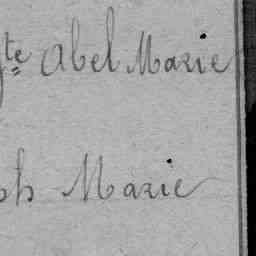 te Abel Marie
ph Marie